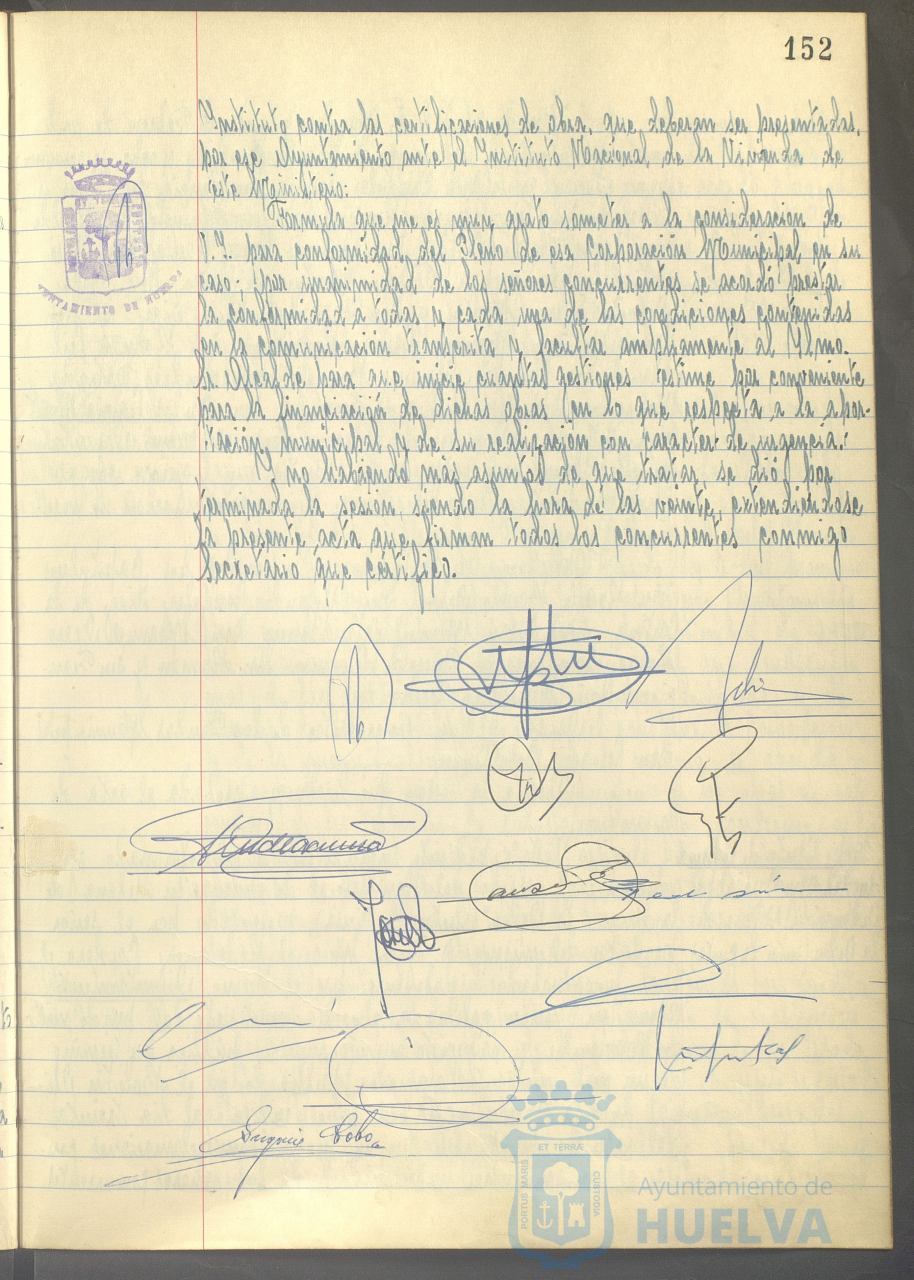 152
Instituto contra las certificaciones de obra, que deberan ser presentadas,
por ese Ayuntamiento ante el Instituto Nacional de la Vivienda de
este Ministerio:
Formula que me es muy grato someter a la consideracion de
V.I. para conformidad del Pleno de esa Corporación Municipal en su
caso; por unanimidad de los señores concurrentes se acordó prestar
la conformidad a todas y cada una de las condiciones contenidas
en la comunicación transcrita y facultar ampliamente al Ylmo.
Sr. Alcalde para que inicie cuantas gestiones estime por conveniente
para la financiación de dichas obras en lo que respecta a la apor-
tación municipal y de su realización con caracter de urgencia.
Y no habiendo más asuntos de que tratar, se dió por
terminada la sesión, siendo la hora de las veinte, extendiendose
la presente acta que firman todos los concurrentes conmigo
Secretario que certifico.
AYUNTAMIENTO DE HUELVA
Eugenio Bobo
ET TERRÆ
PORTUS MARIS
CUSTODIA
Ayuntamiento de
HUELVA